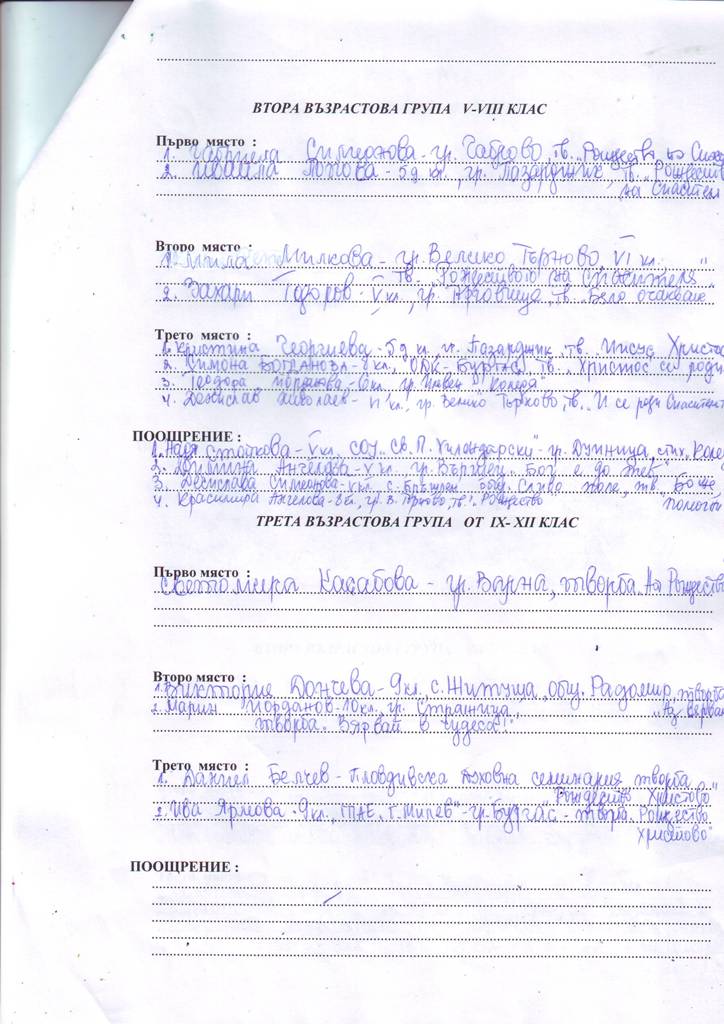 ВТОРА ВЪЗРАСТОВА ГРУПА V-VIII КЛАС
Първо място :
1. Габриела Симеонова - гр. Габрово, тв. "Рождество на Спас
2. Ивайла Попова - 5д кл., гр. Пазарджик, тв. "Рождеств
на Спасител
Второ място :
1. Милкова - гр. Велико Търново VI кл. "
тв. "Рождеството на Спасителя"
2. Захари Тодоров - V кл., гр. тв. "Бяло очакване
Трето място :
1. Кристина Георгиева - 5д кл. гр. Пазарджик, тв. "Иисус Христос
2. Симона Богданова - кл., ОДК - Бургас, тв. "Христос се роди
3. Теодора кл. гр. Плевен "Коледа"
4. Николаев - VI кл., гр. Велико Търново, тв. "И се роди Спасителят
ПООЩРЕНИЕ :
1. Надя Стойкова - V кл., СОУ "Св. П. Хилендарски" - гр. Дупница, стих. Коле
2. Ангелова - V кл., гр. Вършец "Бог е до теб"
3. Десислава Симеонова - V кл. с. Бръшлен, общ. Сливо поле, тв. "Боже
4. Красимира Ангелова - 8 кл., гр. В. Търново, тв. "Рождество "помогни
ТРЕТА ВЪЗРАСТОВА ГРУПА ОТ IX- XII КЛАС
Първо място :
Светломира Касабова - гр. Варна, творба "На Рождество
Второ място :
1. Виктория Дончева - 9 кл., с. Житуша, общ. Радомир, творба
2. Марин Йорданов - 10 кл. гр. Стражица "Аз вярва
творба "Вярвай в чудеса!"
Трето място :
1. Даниел Белчев - Пловдивска духовна семинария творба
"Рождество Христово"
2. Ива Ярмова - 9 кл., ГПАЕ "Г. Милев" - гр. Бургас - творба "Рождество
Христово"
ПООЩРЕНИЕ :